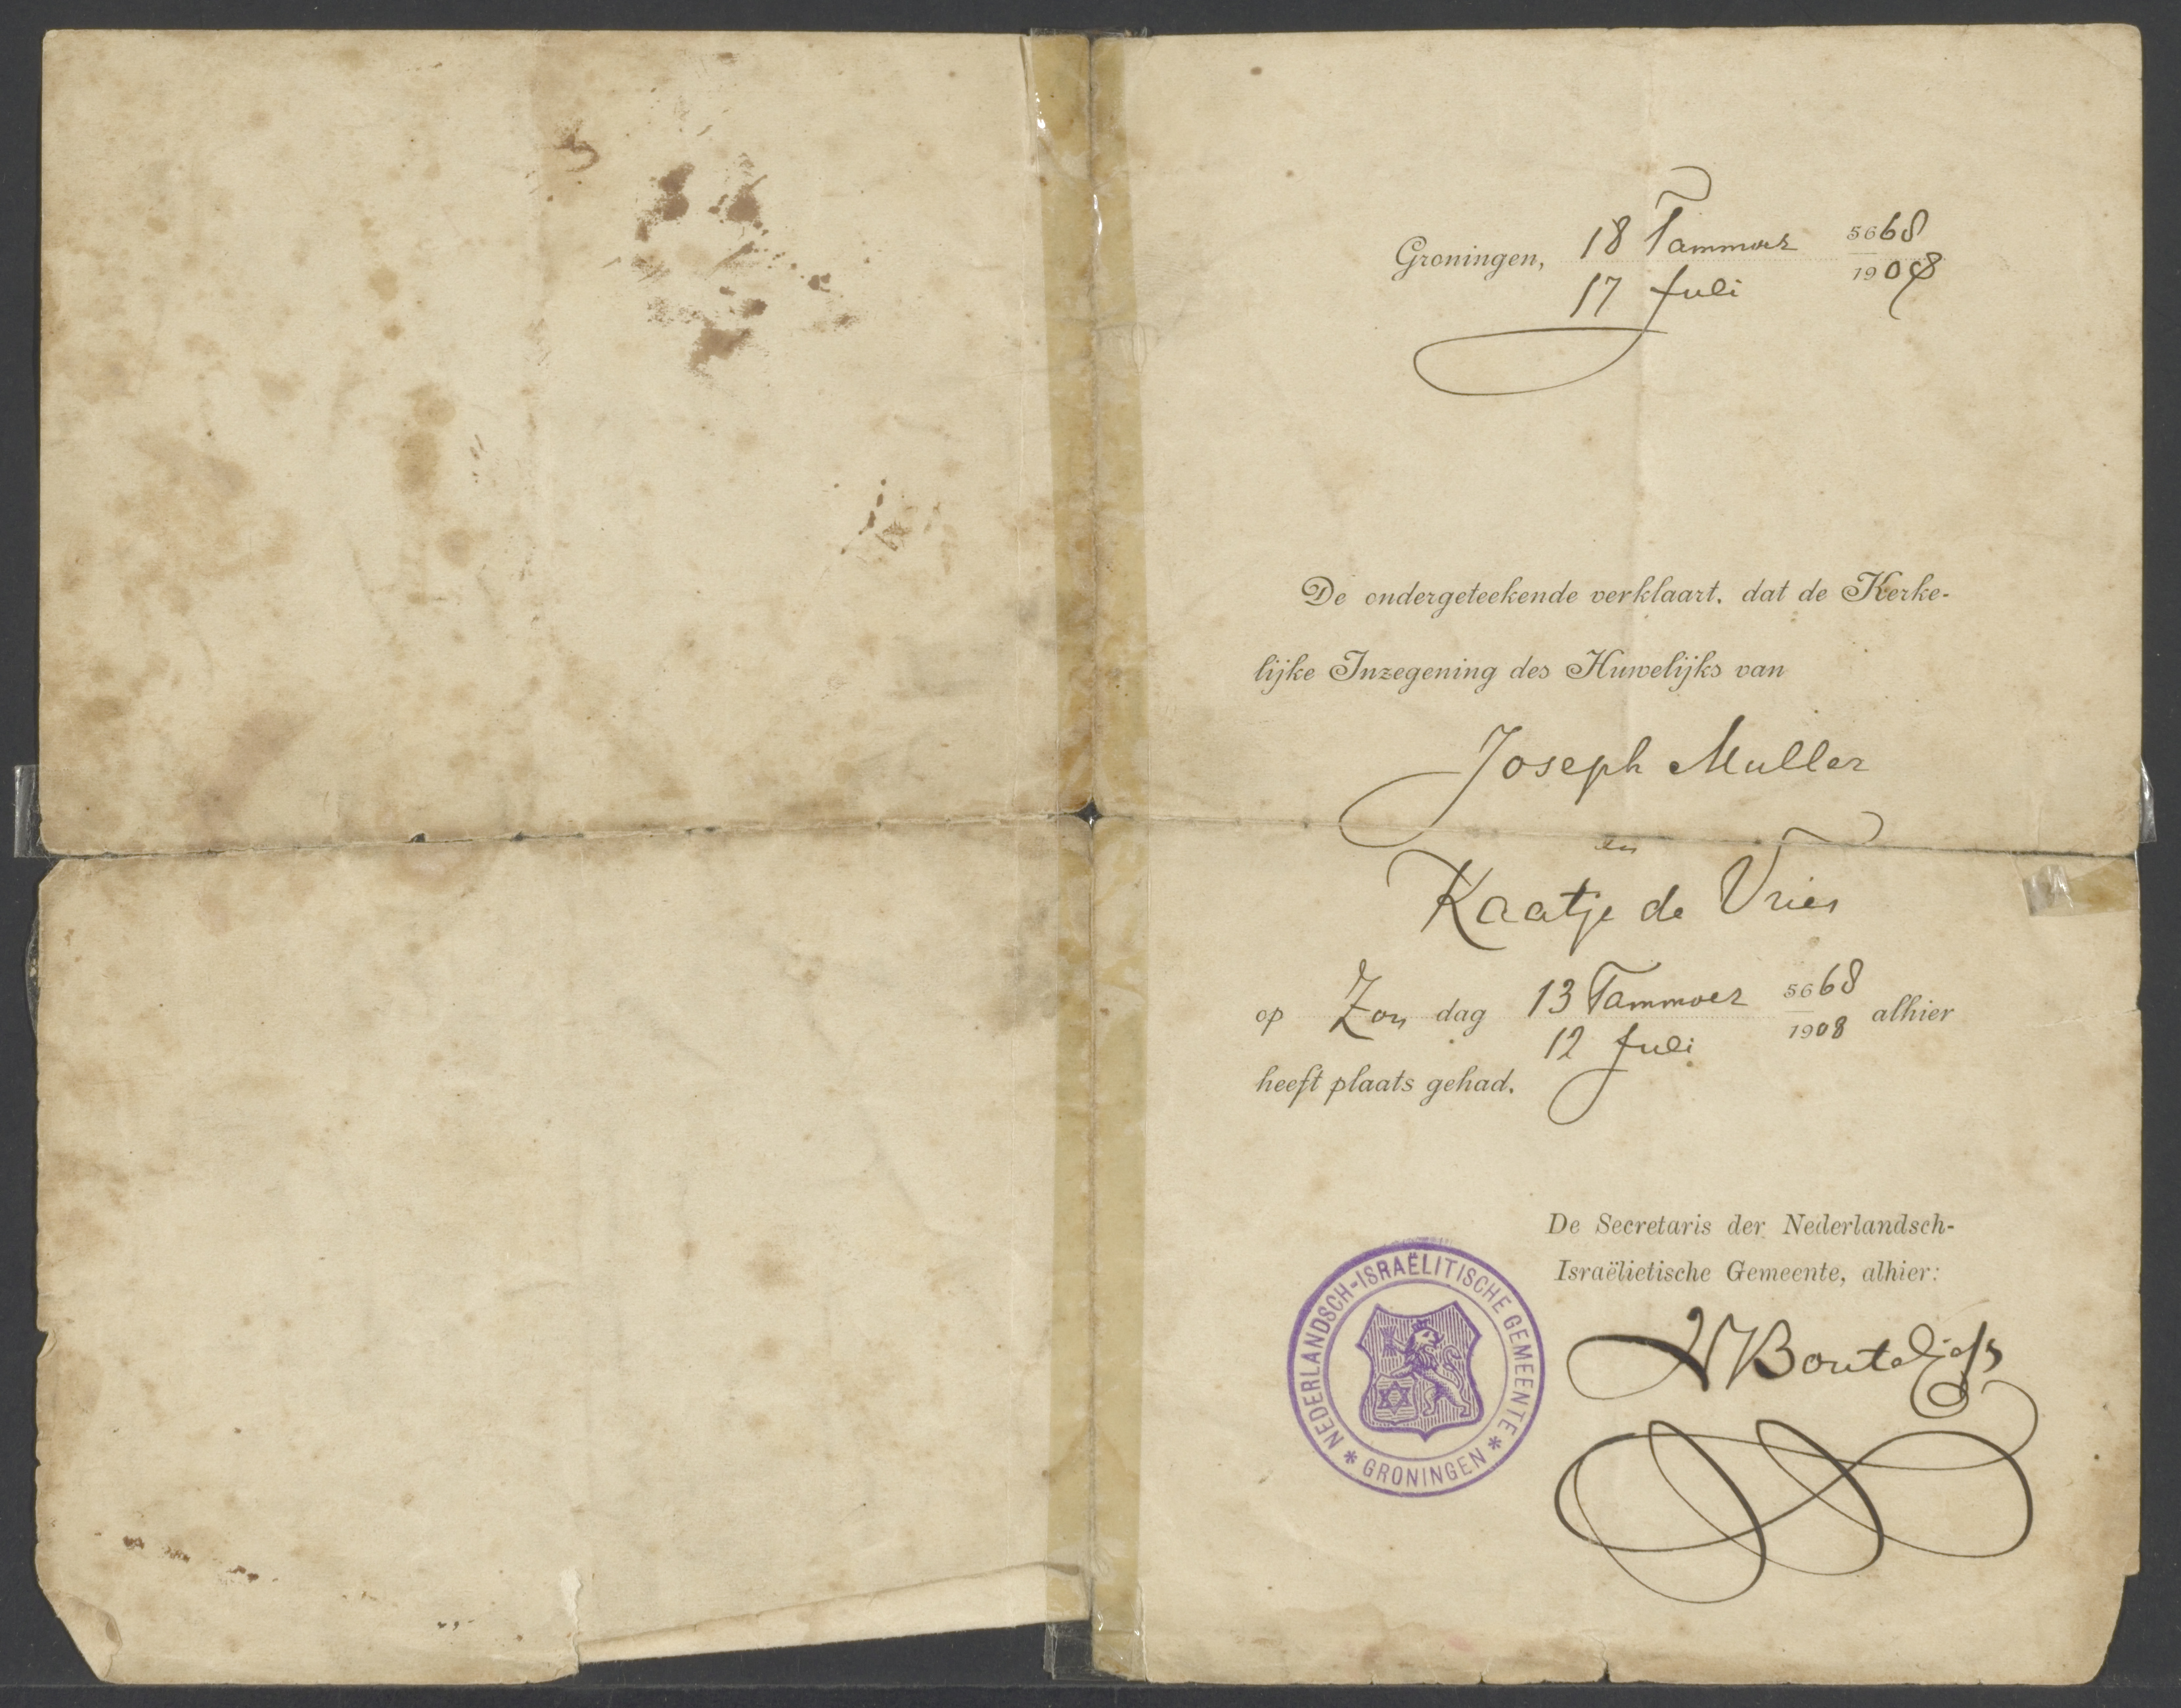 Groningen, 18 Tammoez 5668
17 Juli 1908
De ondergeteekende verklaart, dat de Kerke-
lijke Inzegening des Huwelijks van
Joseph Muller
en
Kaatje de Vries
op Zon dag 13 Tammoez 5668 alhier
12 Juli 1908
heeft plaats gehad.
De Secretaris der Nederlandsch-
Israëlietische Gemeente, alhier:
NEDERLANDSCH-ISRAËLITISCHE GEMEENTE
* GRONINGEN *